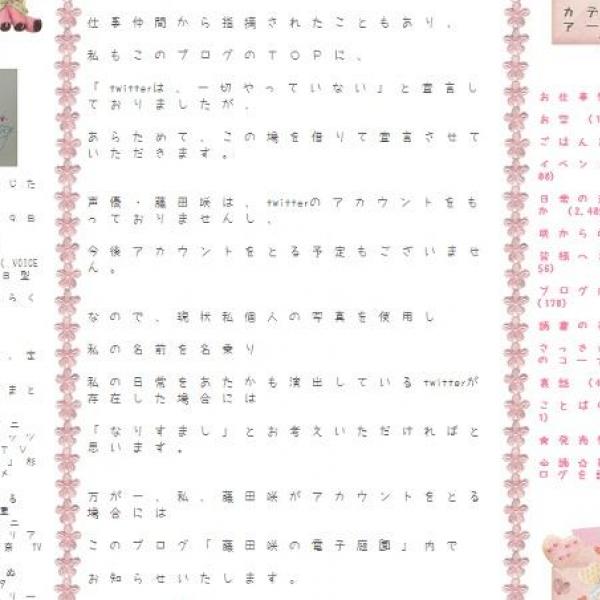 仕事仲間から指摘されたこともあり、
私もこのブログのTOPに、
『twitterは、一切やっていない』と宣言し
ておりましたが、
あらためて、この場を借りて宣言させて
いただきます。
声優・藤田咲は、twitterのアカウントをも
っておりませんし、
今後アカウントをとる予定もございませ
ん。
なので、現状私個人の写真を使用し
私の名前を名乗り
私の日常をあたかも演出しているtwitterが
存在した場合には
「なりすまし」とお考えいただければと
思います。
万が一、私、藤田咲がアカウントをとる
場合には
このブログ「藤田咲の電子庭園」内で
お知らせいたします。
じた
9日
( VOICE
らく
まと
TV
カテ
アー
お仕事
お空 (1
ごはん
イベン
日常の
か (2,48
咲から
皆様へ
56)
ブログ
(178)
読書の
さっき
のコー
裏話 (4
ことば
1)
★発売
必読☆
ログを